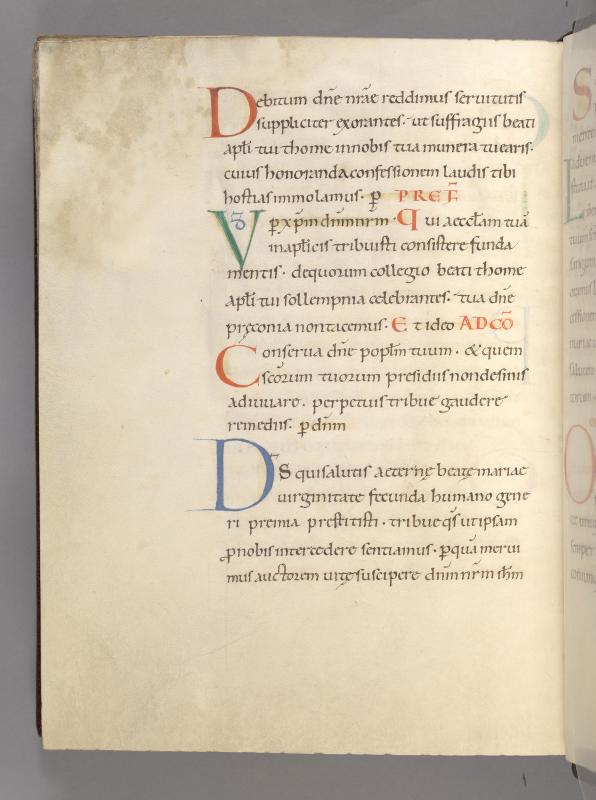 Debitum dñe nr̃ae reddimus seruitutis
suppliciter exorantes. ut suffragiis beati
apl̃i tui thome in nobis tua munera tuearis.
cuius honoranda confessionem laudis tibi
hostias immolamus. p̲ PREF̃
VD p̲ xp̃m dñm nr̃m. Qui aeccl̃am tuã
in apl̃icis tribuisti consistere funda
mentis. de quorum collegio beati thome
apl̃i tui sollempnia celebrantes. tua dñe
pręconia non tacemus. Et ideo AD CÕ
Conserua dñe popl̃m tuum. & quem
sc̃orum tuorum presidiis non desinis
adiuuare. perpetuis tribue gaudere
remediis. p̲ dñm
D̃S qui salutis aeternę beatę mariae
uirginitate fecunda humano gene
ri premia prestitisti. tribue q̃s ut ipsam
p̲ nobis intercedere sentiamus. p̲ quã merui
mus auctorem uitę suscipere dñm nr̃m ih̃m